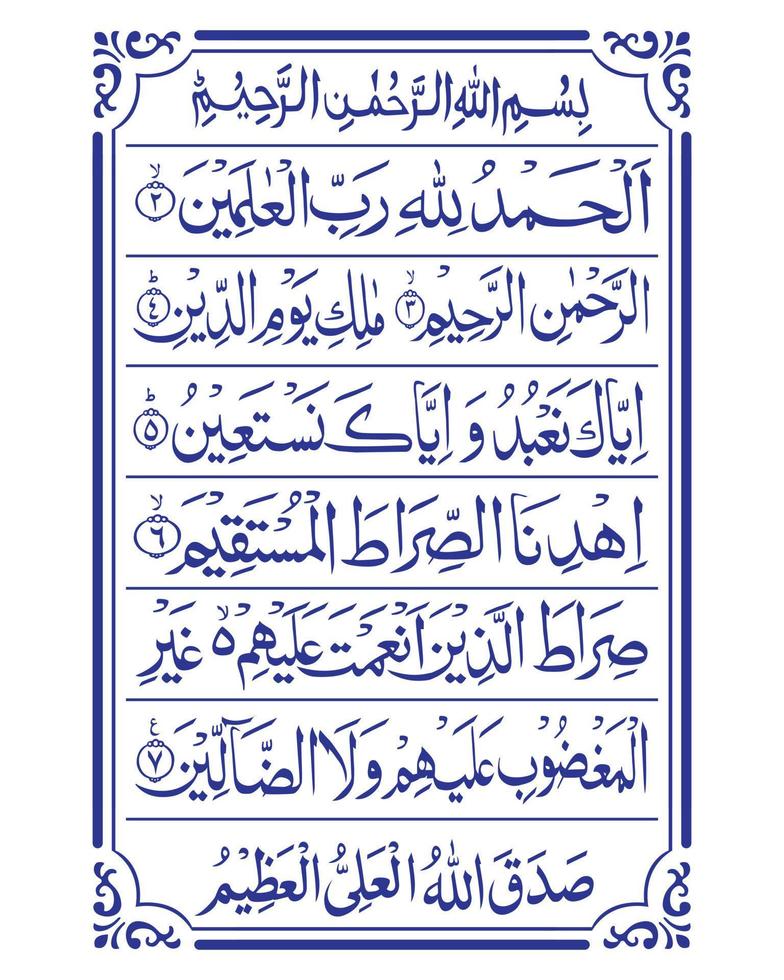 بِسْمِ اللهِ الرَّحْمٰنِ الرَّحِيْمِ
اَلْحَمْدُ لِلّٰهِ رَبِّ الْعٰلَمِيْنَ ۙ‏﴿۲﴾
الرَّحْمٰنِ الرَّحِيْمِ ۙ‏﴿۳﴾ مٰلِكِ يَوْمِ الدِّيْنِ ؕ‏﴿٤﴾
اِيَّاكَ نَعْبُدُ وَ اِيَّاكَ نَسْتَعِيْنُ ؕ‏﴿۵﴾
اِهْدِنَا الصِّرَاطَ الْمُسْتَقِيْمَ ۙ‏﴿٦﴾
صِرَاطَ الَّذِيْنَ اَنْعَمْتَ عَلَيْهِمْ ۙ۵ غَيْرِ
الْمَغْضُوْبِ عَلَيْهِمْ وَلَا الضَّآلِّيْنَ ع﴿۷﴾
صَدَقَ اللهُ الْعَلِىُّ الْعَظِيْمُ